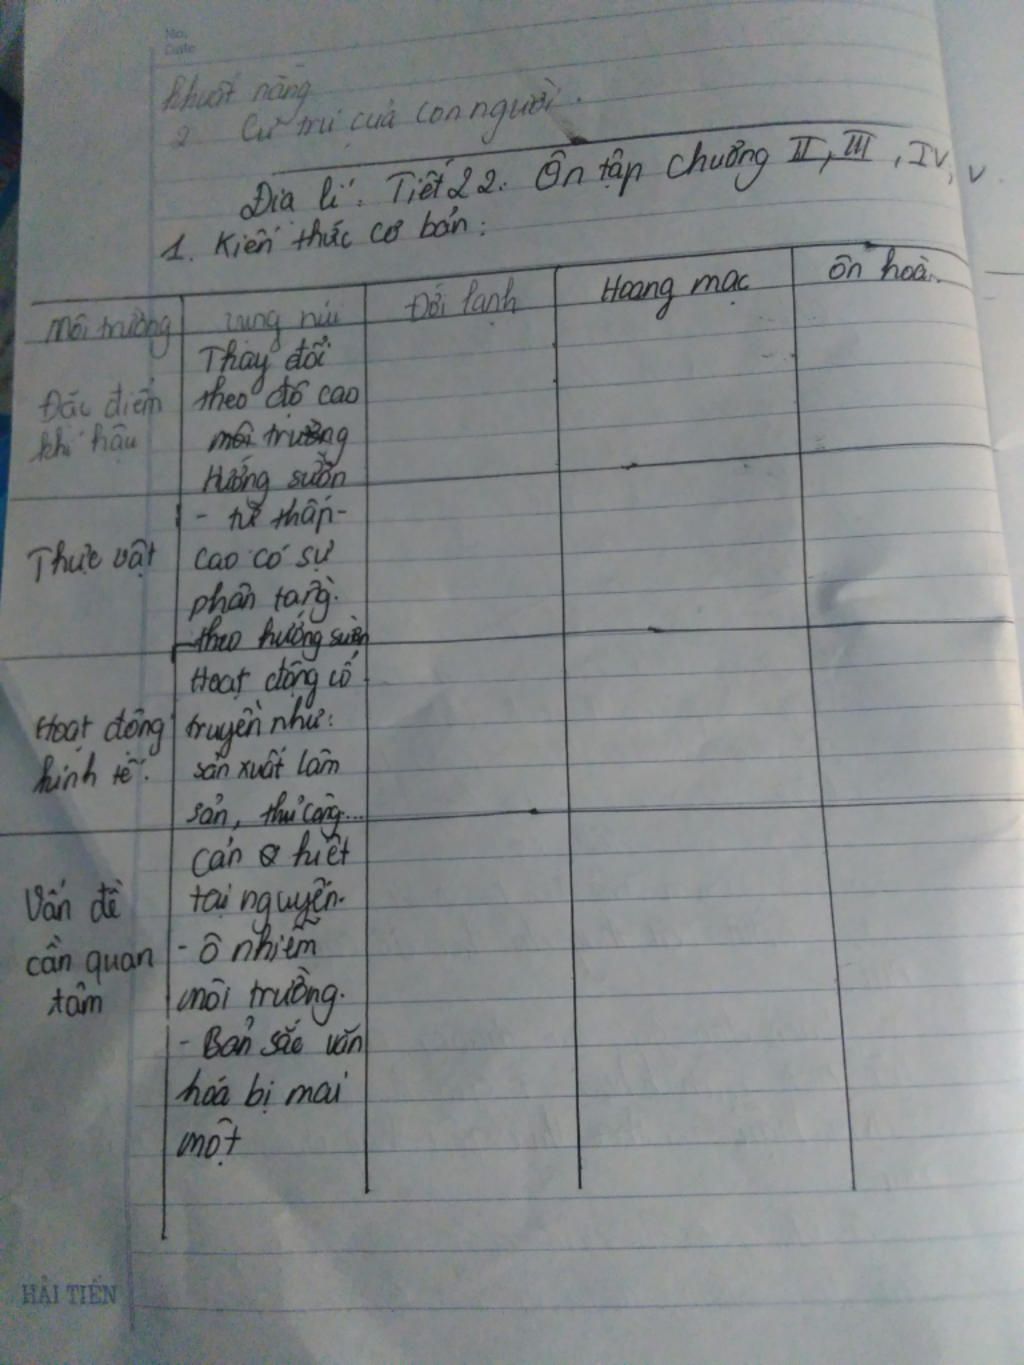 No.
Date
khuất nắng
2 Cư trú của con người.
Địa lí: Tiết 22: Ôn tập chương II, III, IV, V
1. Kiến thức cơ bản:
Môi trường
vùng núi
Đới lạnh
Hoang mạc
Ôn hoà
Đặc điểm
khí hậu
Thay đổi
theo độ cao
môi trường
Hướng sườn
Thực vật
- từ thấp-
cao có sự
phân tầng.
- theo hướng sườn
Hoạt động
kinh tế.
Hoạt động cổ
truyền như:
sản xuất lâm
sản, thủ công...
Vấn đề
cần quan
tâm
cạn kiệt
tài nguyên.
- ô nhiễm
môi trường.
- Bản sắc văn
hoá bị mai
một
HẢI TIẾN